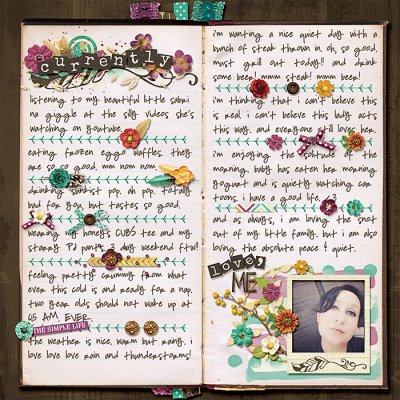 currently
listening to my beautiful little sabri
na giggle at the silly videos she's
watching on youtube.
eating frozen eggo waffles. they
are so so good. mm nom nom.
drinking sunkist pop. oh pop. totally
bad for you but tastes so good.
wearing my honey's CUBS tee and my
starry PJ pants. 3 day weekend ftw!!
feeling pretty crummy from what
ever this cold is and ready for a nap.
two year olds should not wake up at
AM EVER.
THE SIMPLE LIFE
the weather is nice. warm but rainy. i
love love love rain and thunderstorms!
i'm wanting a nice quiet day with a
bunch of steak thrown in. oh, so good.
must grill out today!! and drink
some beer! mmm steak! mmm beer!
i'm thinking that i can't believe this
is real. i can't believe this lady acts
this way. and everyone still loves her.
i'm enjoying the solitude of the
morning. baby has eaten her morning
yogurt and is quietly watching car
toons. i have a good life. <3
and as always, i am loving the snot
out of my little family. but i am also
loving the absolute peace & quiet.
love,
ME